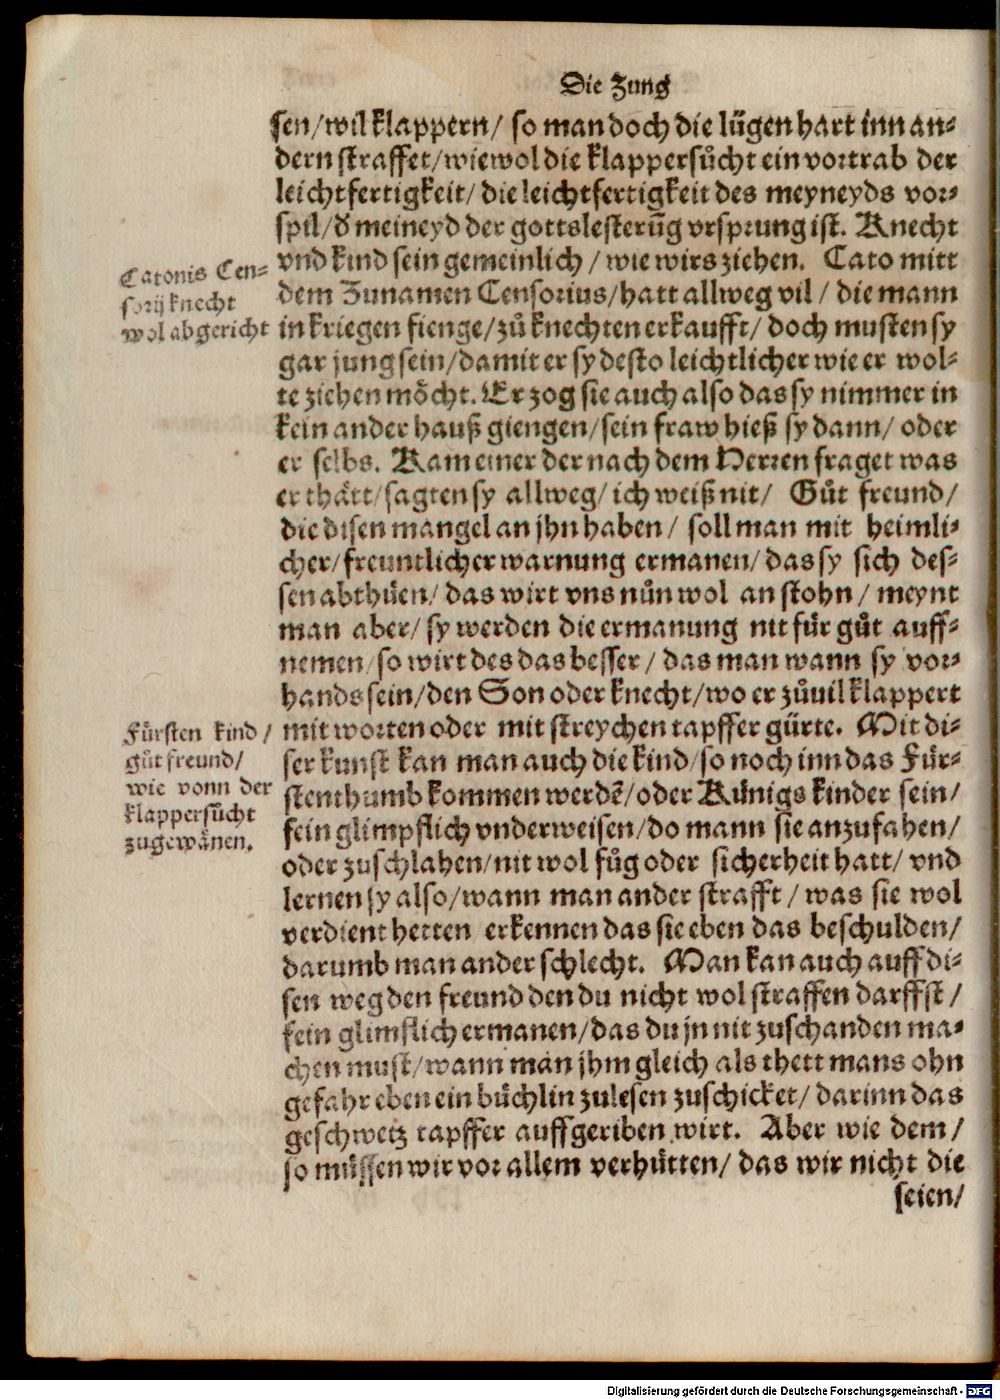 Die Zung
sen/wil klappern/ so man doch die lügen hart inn an-
dern straffet/wiewol die klappersůcht ein vortrab der
leichtfertigkeit/die leichtfertigkeit des meyneyds vor-
spil/đ meineyd der gottslesterūg vrsprung ist. Knecht
vnd kind sein gemeinlich/wie wirs ziehen. Cato mitt
dem Zunamen Censorius/hatt allweg vil/die mann
in kriegen fienge/zů knechten erkaufft/doch musten sy
gar jung sein/damit er sy desto leichtlicher wie er wol-
te ziehen möcht. Er zog sie auch also das sy nimmer in
kein ander hauß giengen/sein fraw hieß sy dann/oder
er selbs. Kam einer der nach dem Herren fraget was
er thått/sagten sy allweg/ich weiß nit/ Gůt freund/
die disen mangel an jhn haben/soll man mit heimli-
cher/freuntlicher warnung ermanen/das sy sich des-
sen abthüen/das wirt vns nůn wol an stohn/meynt
man aber/sy werden die ermanung nit für gůt auff-
nemen/so wirt des das besser/das man wann sy vor-
hands sein/den Son oder knecht/wo er zůuil klappert
mit worten oder mit streychen tapffer gürte. Mit di-
ser kunst kan man auch die kind/so noch inn das Für-
stenthumb kommen werdē/oder Künigs kinder sein/
fein glimpflich vnderweisen/do mann sie anzufahen/
oder zuschlahen/nit wol fůg oder sicherheit hatt/vnd
lernen sy also/wann man ander strafft/was sie wol
verdient hetten erkennen das sie eben das beschulden/
darumb man ander schlecht. Man kan auch auff di-
sen weg den freund den du nicht wol straffen darffst/
fein glimflich ermanen/das du jn nit zuschanden ma-
chen must/wann man jhm gleich als thett mans ohn
gefahr eben ein büchlin zulesen zuschicket/darinn das
geschwetz tapffer auffgeriben wirt. Aber wie dem/
so müssen wir vor allem verhütten/das wir nicht die
seien/
Catonis Cen-
sorij knecht
wol abgericht
Fürsten kind/
gůt freund/
wie vonn der
klappersůcht
zugewånen.
Digitalisierung gefördert durch die Deutsche Forschungsgemeinschaft - DFG